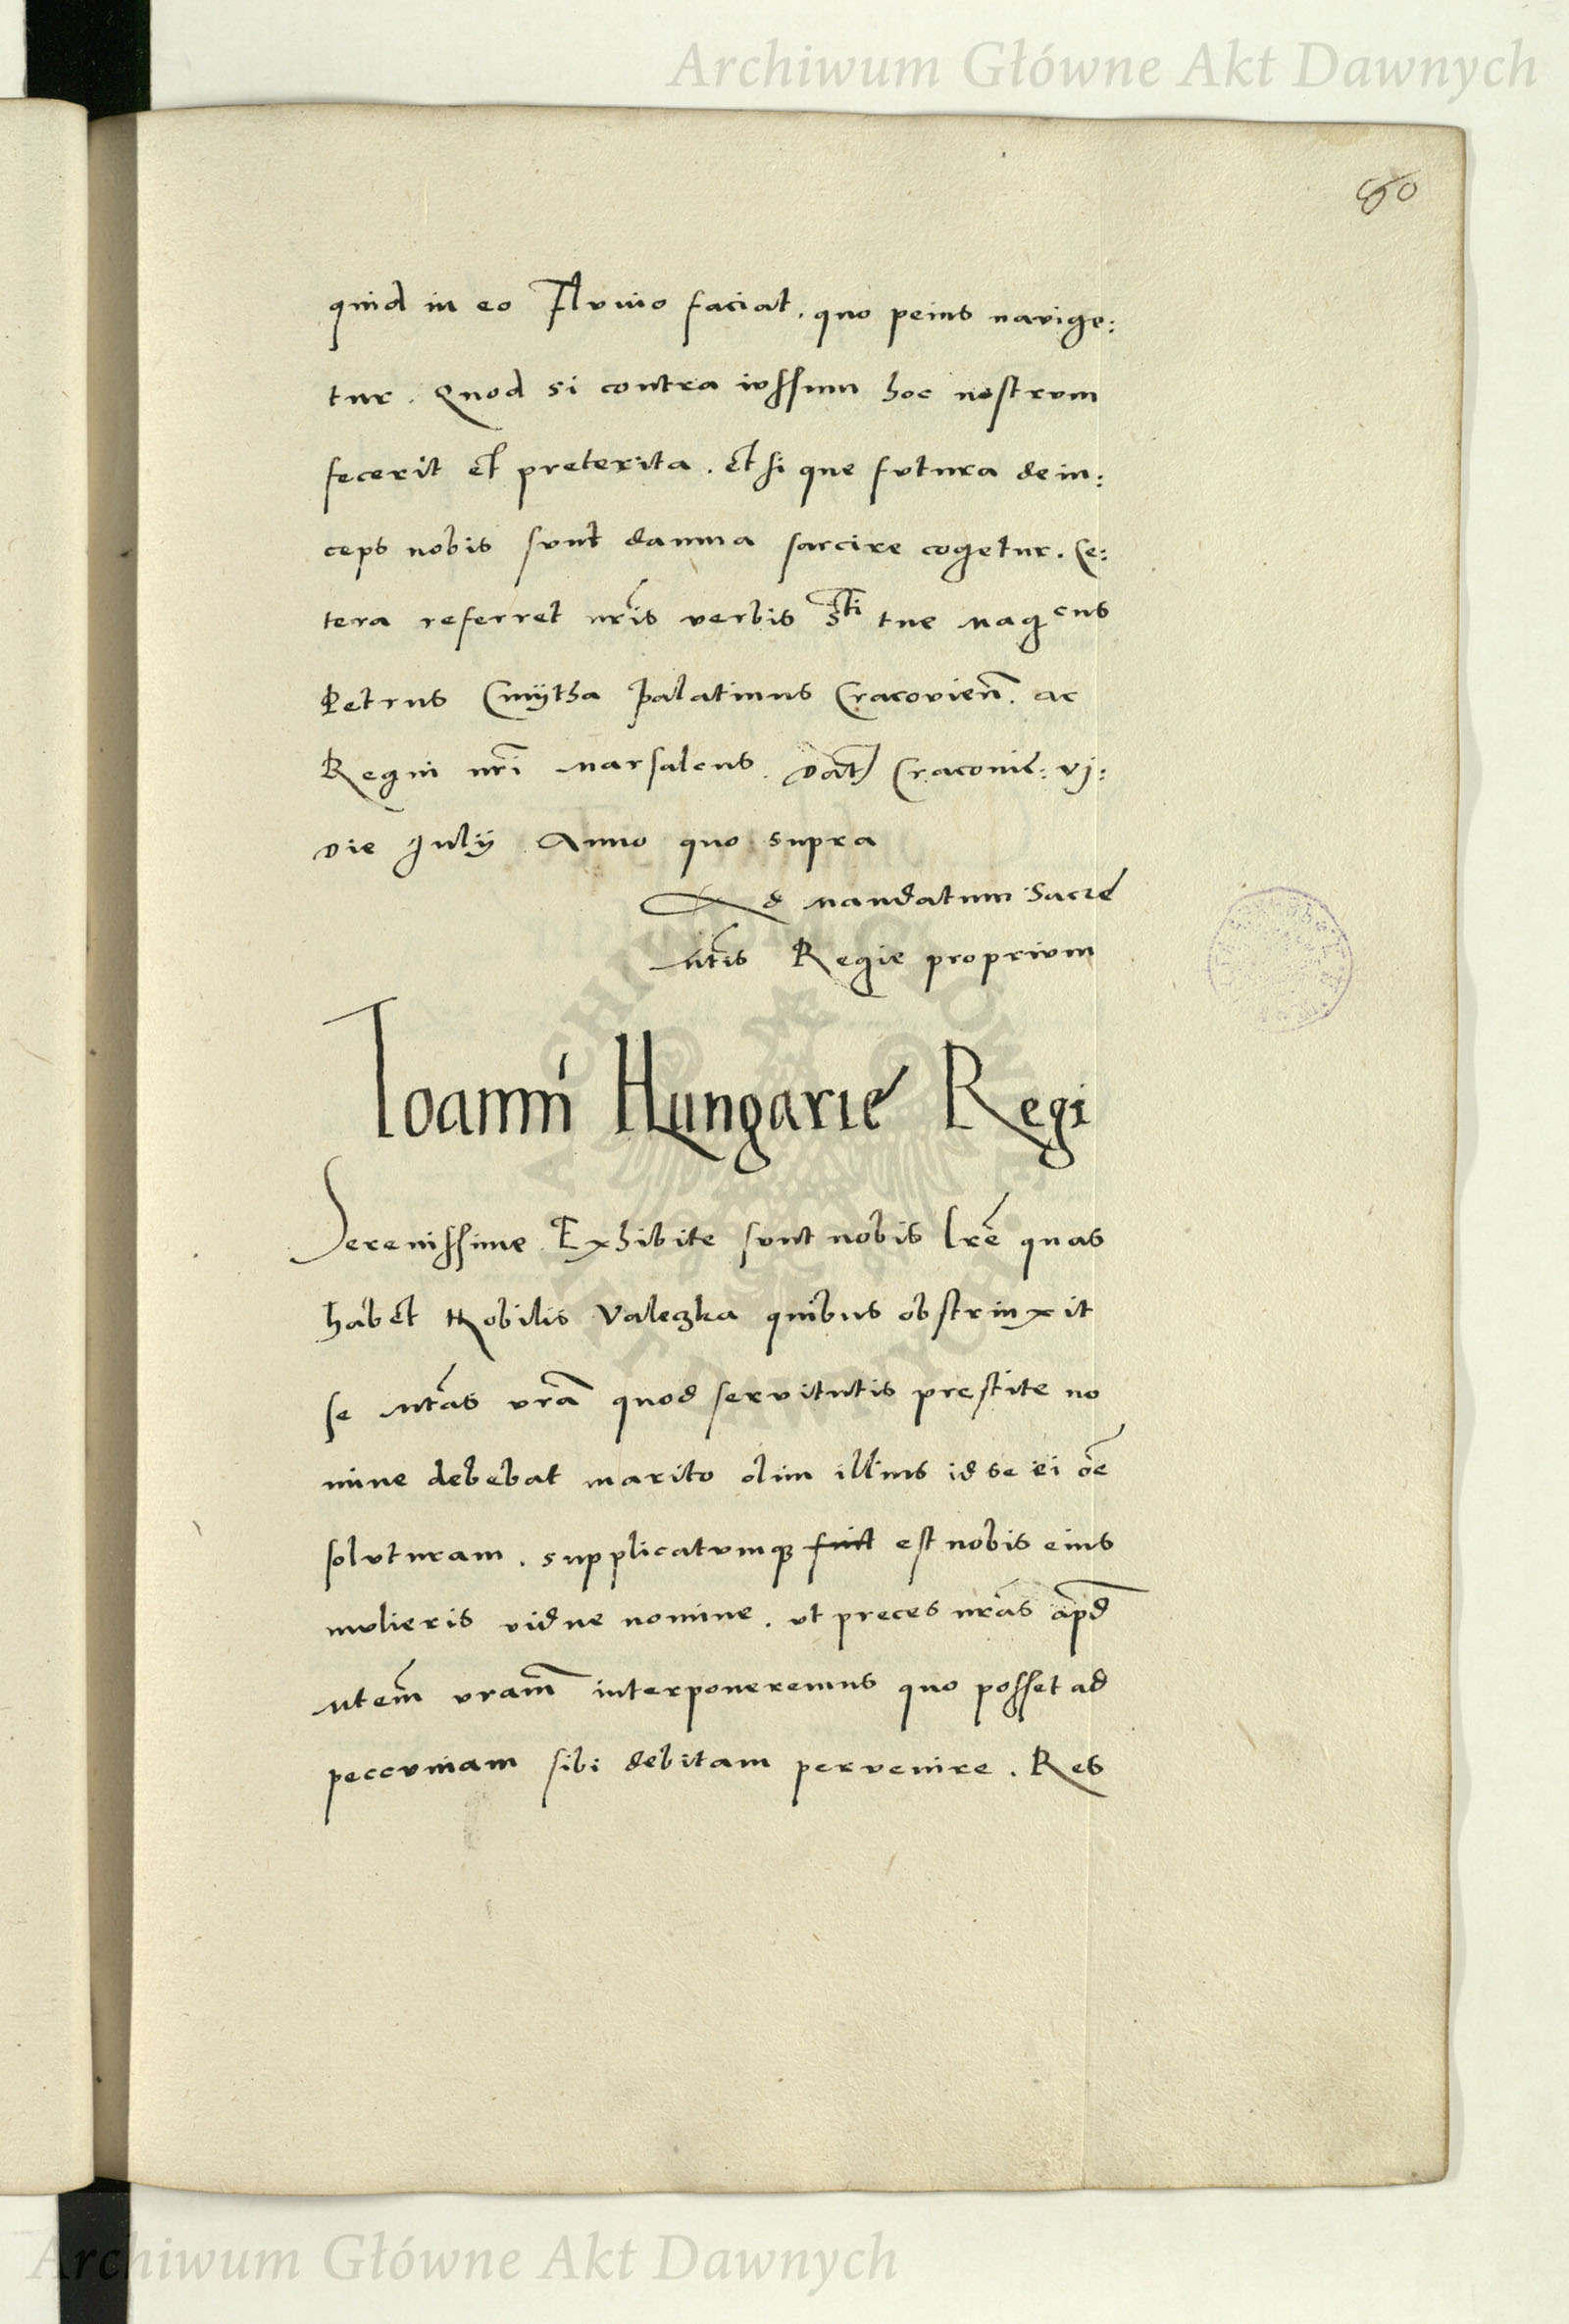 Archiwum Główne Akt Dawnych
60
quid in eo Fluuio faciat. quo peius navige:
tur. Quod si contra iussum hoc nostrum
fecerit et preterita. Et si que futura dein:
ceps nobis sunt damna sarcire cogetur. Ce:
tera referret nris verbis Sti tue Magcus
Petrus Cmÿtha Palatinus Cracovien. ac
Regni nri Marsalcus. Dat Cracovie: vj:
Die Julÿ Anno quo supra
Ad Mandatum Sacre
Mtis Regie proprium
Ioanni Hungarie Regi
Serenissime Exhibite sunt nobis lre quas
habet Nobilis Valeczka quibus obstrinxit
se Mtas vra quod servitutis prestite no
mine debebat marito olim illius id se ei oe
soluturam. supplicatumq fuit est nobis eius
mulieris vidue nomine. ut preces nras apd
Mtem vram interponeremus quo posset ad
peccuniam sibi debitam pervenire. Res
Archiwum Główne Akt Dawnych